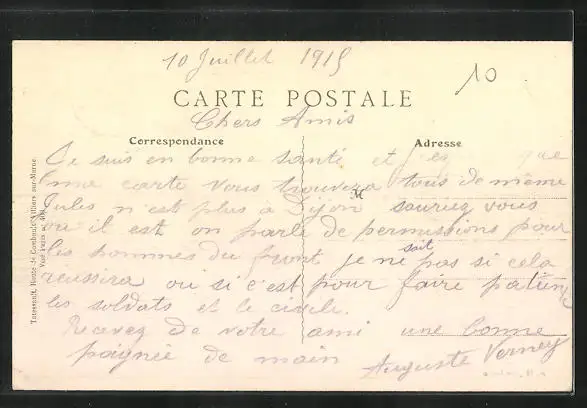 10 Juillet 1915
10
CARTE POSTALE
Chers Amis
Correspondance
Adresse
Je suis en bonne santé et que
ma carte vous trouvera tous de même
Jules n'est plus à Dijon sauriez vous
où il est on parle de permissions pour
les hommes du front je ne sait pas si cela
reussira ou si c'est pour faire patienté
les soldats et le civile.
Recevez de votre ami une bonne
poignée de main
Auguste Verney